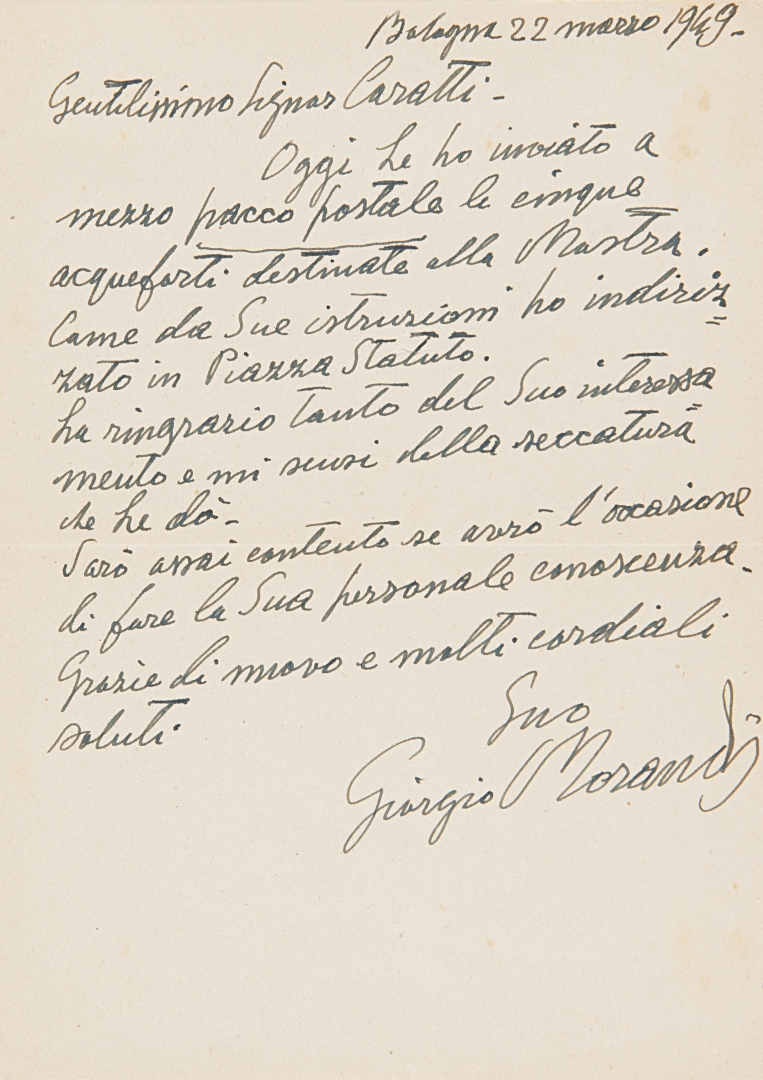 Bologna 22 marzo 1949-
Gentilissimo Signor Caratti -
Oggi Le ho inviato a
mezzo pacco postale le cinque
acqueforti destinate alla Mostra.
Come da Sue istruzioni ho indiriz=
zato in Piazza Statuto.
La ringrazio tanto del Suo interessa=
mento e mi scusi della seccatura
che Le dò-
Sarò assai contento se avrò l'occasione
di fare la Sua personale conoscenza-
Grazie di nuovo e molti cordiali
saluti.
Suo
Giorgio Morandi